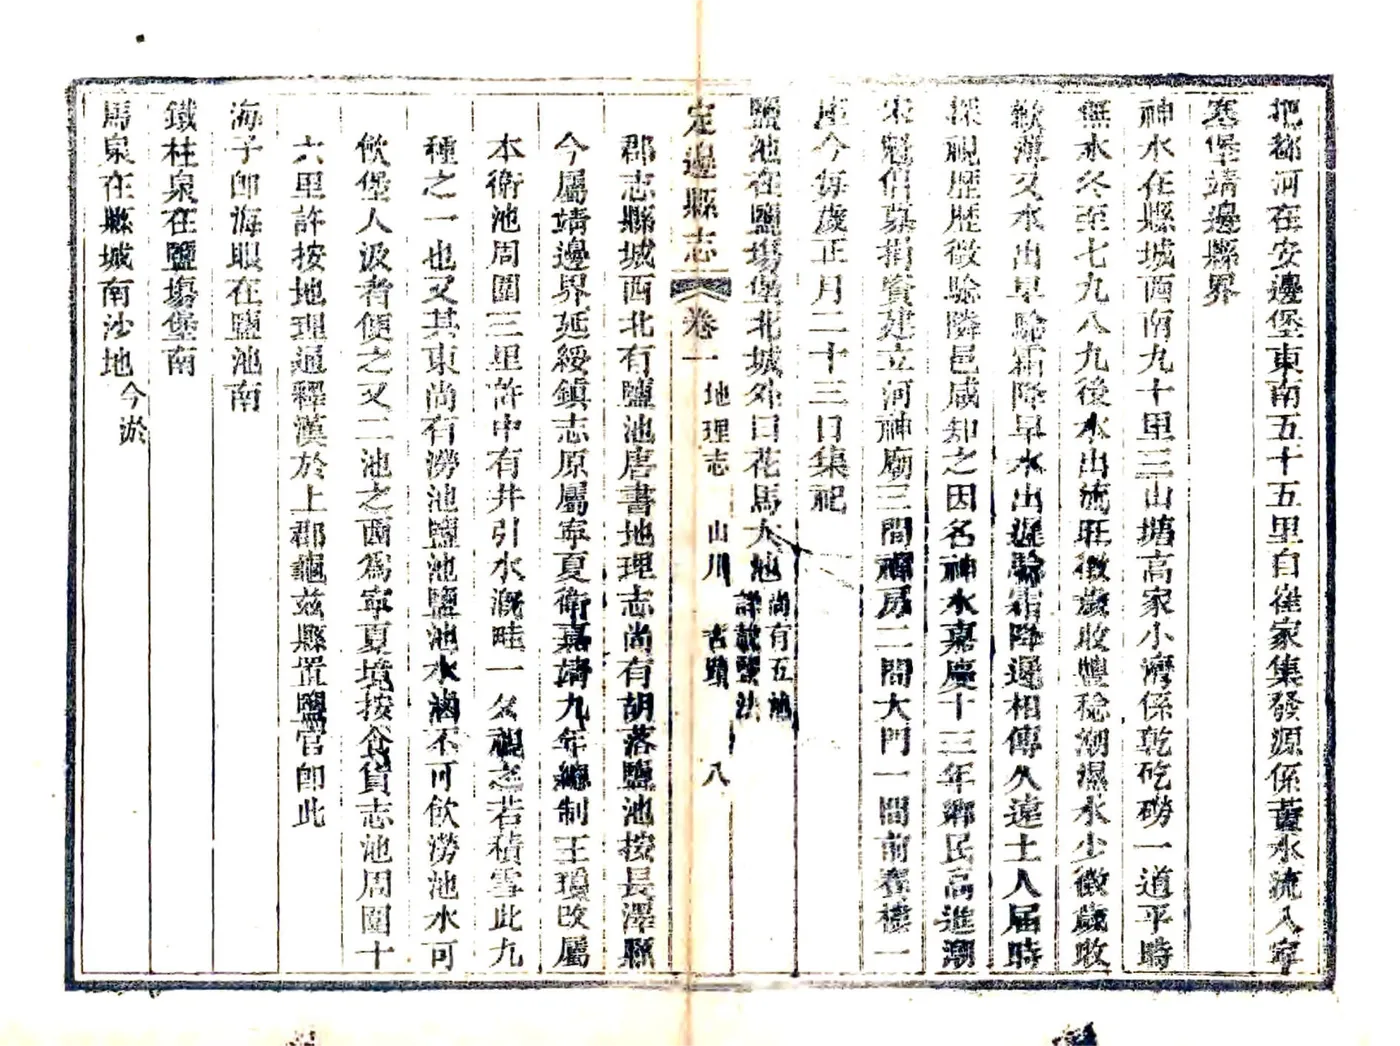 把都河在安邊堡東南五十五里自崔家集發源係苦水流入寧
塞堡靖邊縣界
神水在縣城西南九十里三山塘高家小灣係乾矻磱一道平時
無水冬至七九八九後水出流旺徵歲收豐稔潮濕水少徵歲收
歉薄又水出早驗霜降早水出遲驗霜降遲相傳久遠土人届時
探視歷歷徵驗隣邑咸知之因名神水嘉慶十三年鄉民高進潮
宋魁倡募捐資建立河神廟三間禪房二間大門一間前在樓一
座今每歲正月二十三日集祀
鹽池在鹽塲堡北城外曰花馬大池尚有五池
詳載鹽法
定邊縣志 卷一 地理志 山川 古蹟 八
郡志縣城西北有鹽池唐書地理志尚有胡落鹽池按長澤縣
今屬靖邊界延綏鎮志原屬寧夏衛嘉靖九年總制王瓊改屬
本衛池周圍三里許中有井引水溉畦一夕視之若積雪此九
種之一也又其東尚有澇池鹽池鹽池水滷不可飲澇池水可
飲堡人汲者便之又二池之西為寧夏境按食貨志池周圍十
六里許按地理通釋漢於上郡龜兹縣置鹽官卽此
海子卽海眼在鹽池南
鐵柱泉在鹽塲堡南
馬泉在縣城南沙地今淤